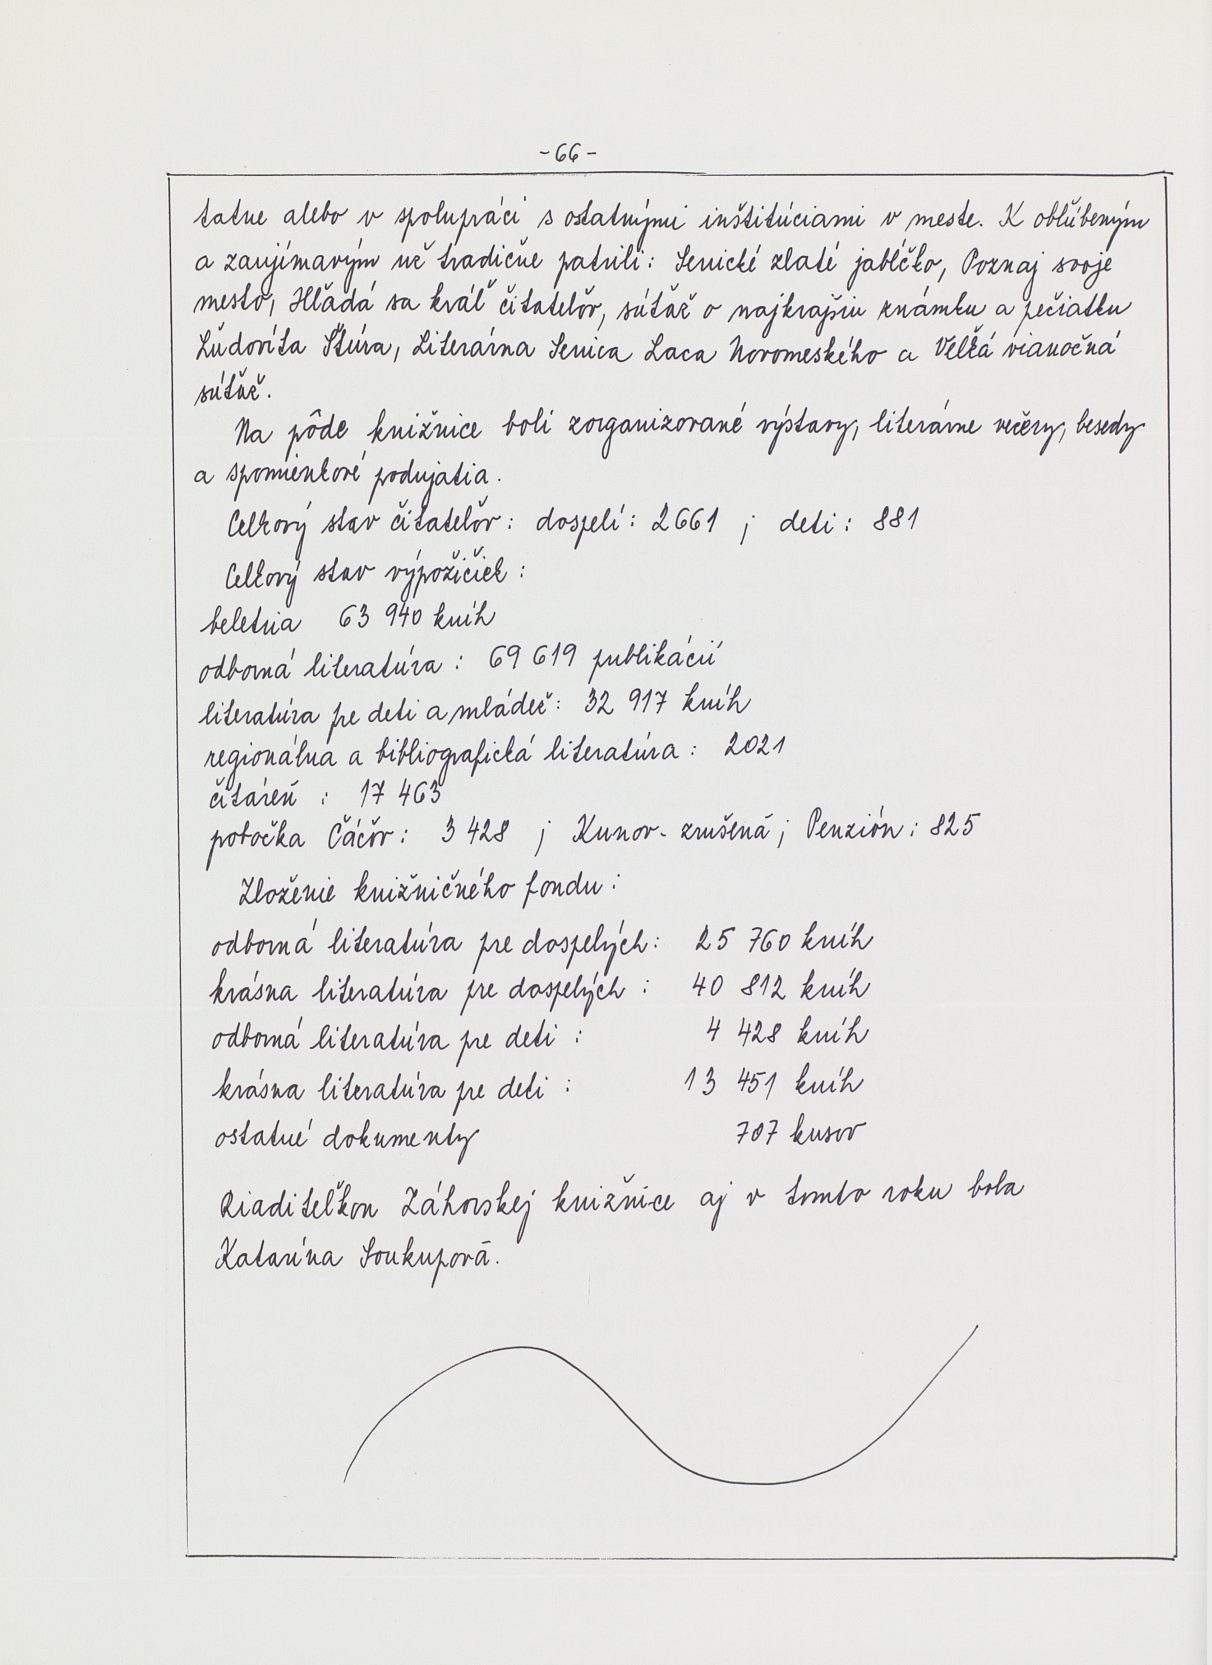 -66-
tatne alebo v spolupráci s ostatnými inštitúciami v meste. K obľúbeným
a zaujímavým už tradične patrili: Senické zlaté jabĺčko, Poznaj svoje
mesto, Hľadá sa kráľ čitateľov, súťaž o najkrajšiu známku a pečiatku
Ľudovíta Štúra, Literárna Senica Laca Novomeského a Veľká vianočná
súťaž.
Na pôde knižnice boli zorganizované výstavy, literárne večery, besedy
a spomienkové podujatia.
Celkový stav čitateľov: dospelí: 2661 ; deti: 881
Celkový stav výpožičiek :
beletria 63 940 kníh
odborná literatúra : 69 619 publikácií
literatúra pre deti a mládež: 32 917 kníh
regionálna a bibliografická literatúra : 2021
čitáreň : 17 463
pobočka Čáčov: 3 428 ; Kunov - zrušená ; Penzión: 825
Zloženie knižničného fondu :
odborná literatúra pre dospelých: 25 760 kníh
krásna literatúra pre dospelých : 40 812 kníh
odborná literatúra pre deti : 4 428 kníh
krásna literatúra pre deti : 13 451 kníh
ostatné dokumenty 707 kusov
Riaditeľkou Záhorskej knižnice aj v tomto roku bola
Katarína Soukupová.